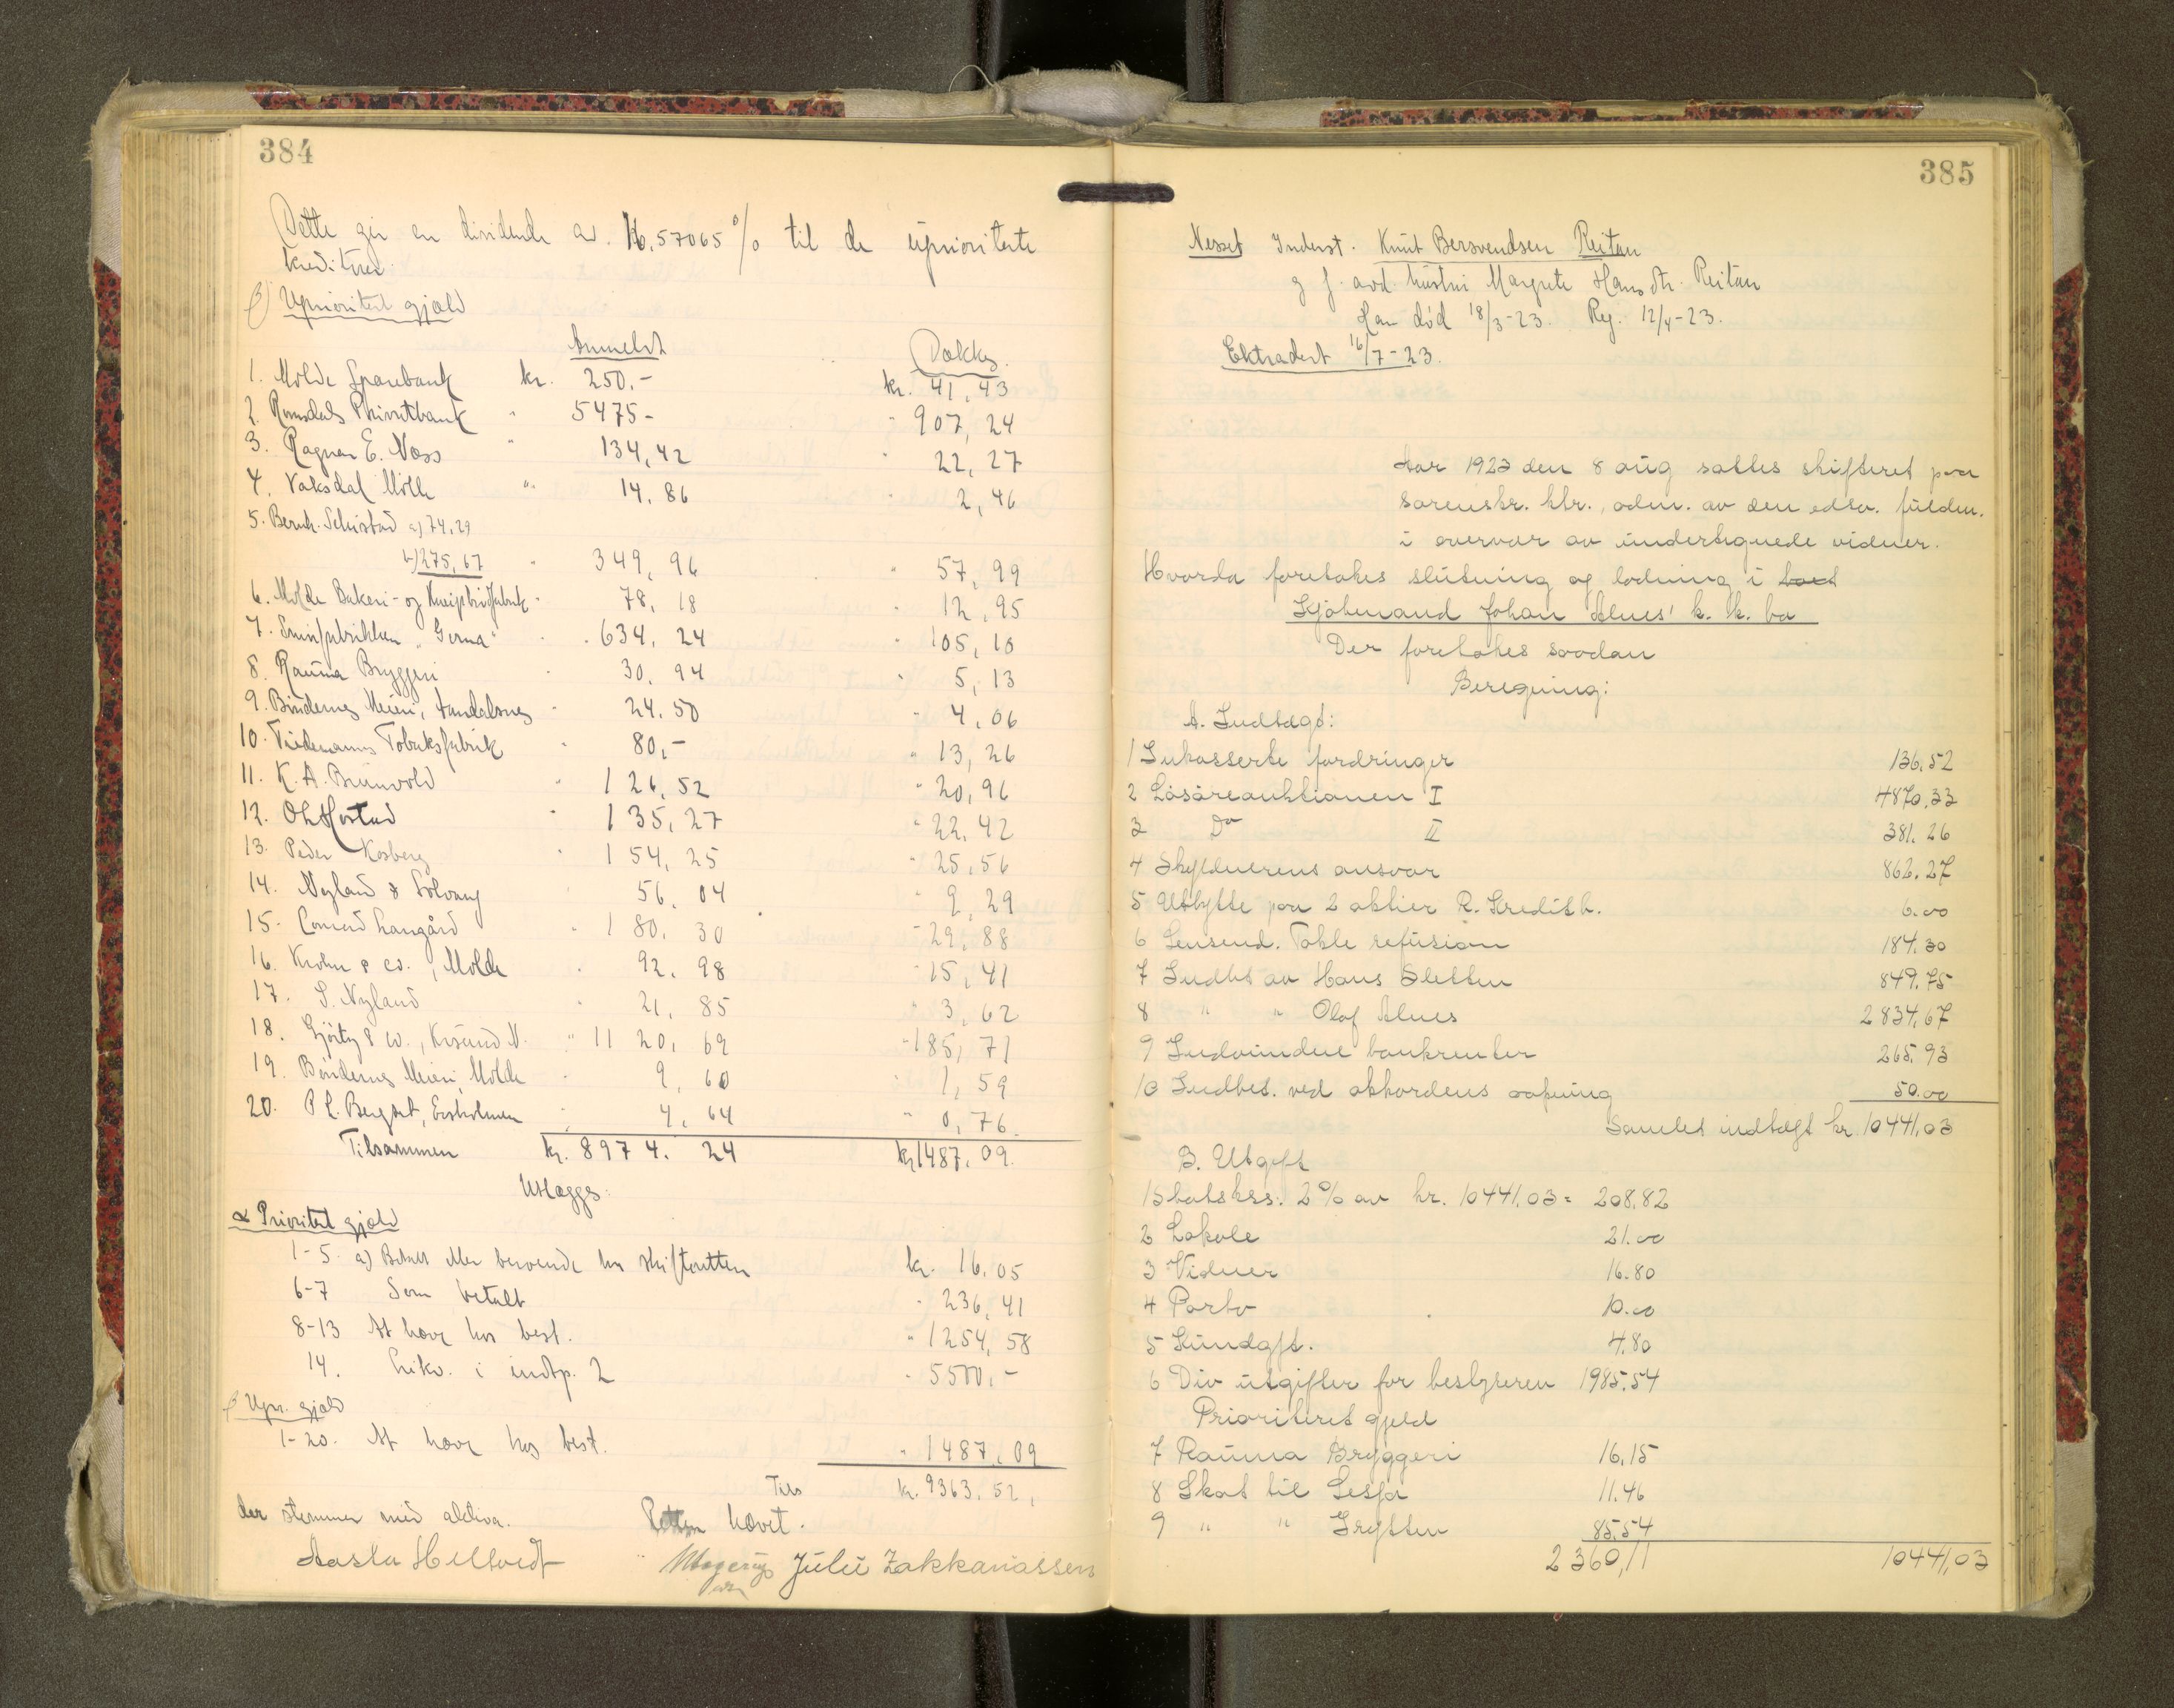 384
Dette gir en dividende av 16,57065% til de uprioriterte
kreditorer.
β) Uprioritert gjæld
Anmeldt Dækkes
1. Molde Sparebank kr. 250.- kr. 41,43
2. Romsdals Privatbank " 5475- " 907,24
3. Ragnar E. Næss " 134,42 " 22,27
4. Vaksdal Mølle " 14.86 " 2,46
5. Bernh. Schistad a) 74,29
b) 275,67 " 349,96 " 57,99
6. Molde Bakeri- og Kneipbrødfabrik " 78,18 " 12,95
7. " Gerna " " 634,24 " 105,10
8. Rauma Bryggeri " 30.94 " 5,13
9. Bøndernes Meieri, Aandalsnes " 24.50 " 4,06
10. Tiedemanns Tobaksfabrik " 80,- " 13,26
11. K. A. Brunvold " 126,52 " 20,96
12. O. Hostad " 135,27 " 22,42
13. Peder Kosberg " 154,25 " 25,56
14. Nyland & Solvang 56.04 " 9,29
15. Conrad Langård " 180.30 " 29,88
16. Krohn & co., Molde " 92.98 " 15,41
17. S. Nyland " 21,85 " 3,62
18. Gjørtz & co., Krsund N. " 1120,69 " 185,71
19. Bøndernes Meieri, Molde " 9,60 " 1,59
20. P. L. Bergset, " 4,64 " 0,76
Tilsammen kr. 8974.24 kr 1487.09
Utlægges:
α Prioritert gjæld
1-5 a) Betalt eller beroende hos skifteretten kr. 16.05
6-7 Som betalt " 236,41
8-13 At hæve hos best. " 1254,58
14. Likv. i indtp. 2 " 5500.-
β Upr. gjæld
1-20. At hæve hos best. " 1487,09
Tils kr. 9363.52,
der stemmer med aktiva. Retten hævet.
Aasta Helltvedt Julie Zakkariassen
385
Nesset Inderst. Knut Bersvendsen Reitan
g f. avd. hustru Margrete Hansdtr. Reitan
Han død 18/3-23. Reg. 12/4-23.
Ektradert 16/7-23.
Aar 1923 den 8 aug sattes skifteret paa
sorenskr. ktr., adm. av den edsv. fuldm.
i overvær av undertegnede vidner.
Hvorda foretokes slutning og lodning i
Kjøbmand Johan Alnes' k. k. bo
Der foretokes saadan
Beregning:
A. Indtægt:
1 Inkasserte fordringer 136.52
2 Løsøreauktionen I 4870.33
3 Do II 381.26
4 Skyldnerens ansvar 862.27
5 Utbytte paa 2 aktier R. Kreditb. 6.00
6 Lensmd. Tokle refusion 184.30
7 Indbt av Hans Sletten 849.75
8 " " Olaf Alnes 2834,67
9 Indvundne bankrenter 265.93
10 Indbet. ved akkordens aapning 50.00
Samlet indtægt kr. 10441,03
B. Utgift
1 Statskss. 2% av kr. 10441,03 = 208,82
2 Lokale 21.00
3 Vidner 16.80
4 Porto 10.00
5 Kundgjt. 4.80
6 Div utgifter for bestyreren 1985.54
Prioriteret gjeld
7 Rauma Bryggeri 16,15
8 Skat til Lesja 11.46
9 " " Grytten 85.54
2360,11 10441,03